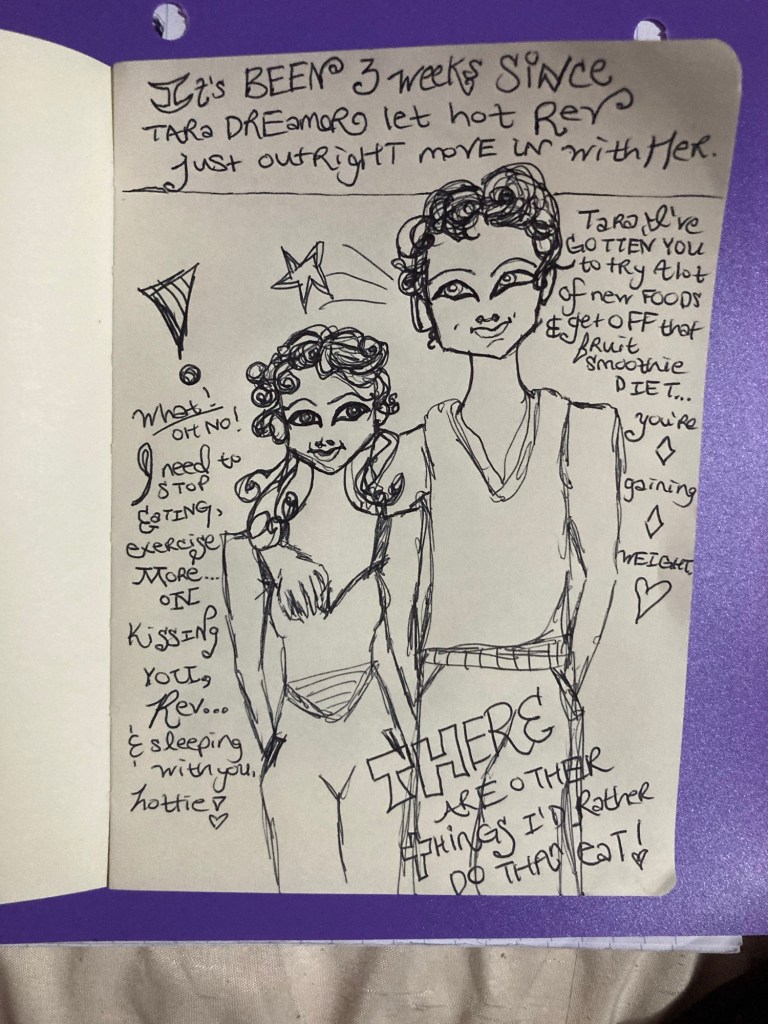 It's BEEN 3 weeks SINCE
TARa DREamOR let hot Rev
just outRigHT movE IN with HER.
Tara, I've
GOTTEN YOU
to try A lot
of new FOODS
& get OFF that
fRuit
smoothie
DIET...
you're
gaining
WEIGHT
What!
OH NO!
I need to
STOP
EATING,
exercise
MORE...
ON
KISSING
YOU,
Rev...
& sleeping
with you,
hottie!
THERE
ARE OTHER
THINGS I'D Rather
DO THAN EaT!